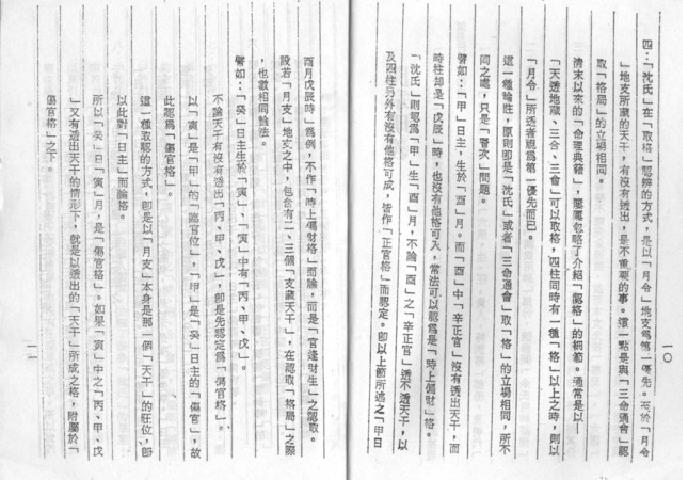 四：「沈氏」在「取格」認辨的方式，是以「月令」地支爲第一優先。至於「月令
」地支所藏的天干，有沒有透出，是不重要的事。這一點是與「三命通會」認
取「格局」的立場相同。
清末以來的「命理典籍」，屢屢忽略了介紹「認格」的細節。通常是以——
「天透地藏、三合、三會」可以取格，四柱同時有一種「格」以上之時，則以
「月令」所透者視爲第一優先而已。
這一種論性，原則卽是「沈氏」或者「三命通會」取「格」的立場相同，所不
同之處，只是「層次」問題。
譬如：「甲」日主，生於「酉」月。而「酉」中「辛正官」沒有透出天干，而
時柱却是「戊辰」時，也沒有他格可入，常法可以認爲是「時上偏財」格。
「沈氏」則認爲「甲」生「酉」月，不論「酉」之「辛正官」透不透天干，以
及四柱另外有沒有他格可成，皆作「正官格」而認定。卽以上節所述之「甲日
一〇
酉月戊辰時」爲例，不作「時上偏財格」而論。而是「官逢財生」之認取。
設若「月支」地支之中，包含有二、三個「支藏天干」，在認取「格局」之際
，也數相同論法。
譬如：「癸」日主生於「寅」，「寅」中有「丙、甲、戊」。
不論天干有沒有透出「丙、甲、戊」，卽是先認定爲「傷官格」。
以「寅」是「甲」的「臨官位」，「甲」是「癸」日主的「傷官」，故
此認爲「傷官格」。
這一種取認的方式，卽是以「月支」本身是那一個「天干」的旺位，卽
以此對「日主」而論格。
所以「癸」日「寅」月，是「傷官格」。如果「寅」中之「丙、甲、戊
」又有透出天干的情形下，就是以透出的「天干」所成之格，附屬於「
傷官格」之下。
一一